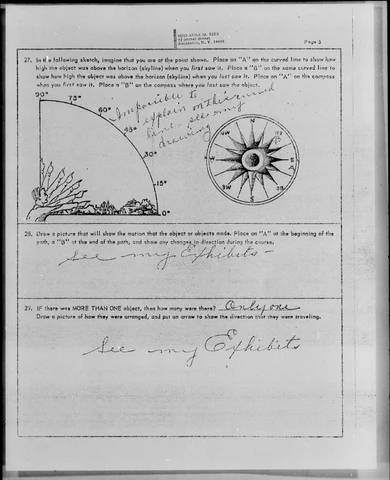 Page 3
27. In the following sketch, imagine that you are at the point shown. Place an "A" on the curved line to show how
high the object was above the horizon (skyline) when you first saw it. Place a "B" on the same curved line to
show how high the object was above the horizon (skyline) when you last saw it. Place an "A" on the compass
when you first saw it. Place a "B" on the compass where you last saw the object.
90°
75°
60°
45°
30°
15°
0°
Impossible to
explain on this curved
line - see my
drawing
N
NE
E
SE
S
SW
W
NW
A
28. Draw a picture that will show the motion that the object or objects made. Place an "A" at the beginning of the
path, a "B" at the end of the path, and show any changes in direction during the course.
See my Exhibits -
29. IF there was MORE THAN ONE object, then how many were there? Only one
Draw a picture of how they were arranged, and put an arrow to show the direction that they were traveling.
See my Exhibits